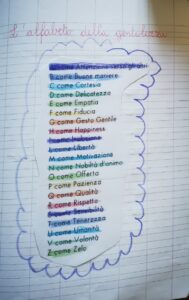 L'alfabeto della gentilezza
A come Attenzione verso gli altri
B come Buone maniere
C come Cortesia
D come Delicatezza
E come Empatia
F come Fiducia
G come Gesto Gentile
H come Happiness
I come Inclusione
L come Libertà
M come Motivazione
N come Nobiltà d'animo
O come Offerta
P come Pazienza
Q come Qualità
R come Rispetto
S come Sensibilità
T come Tenerezza
U come Umanità
V come Volontà
Z come Zelo